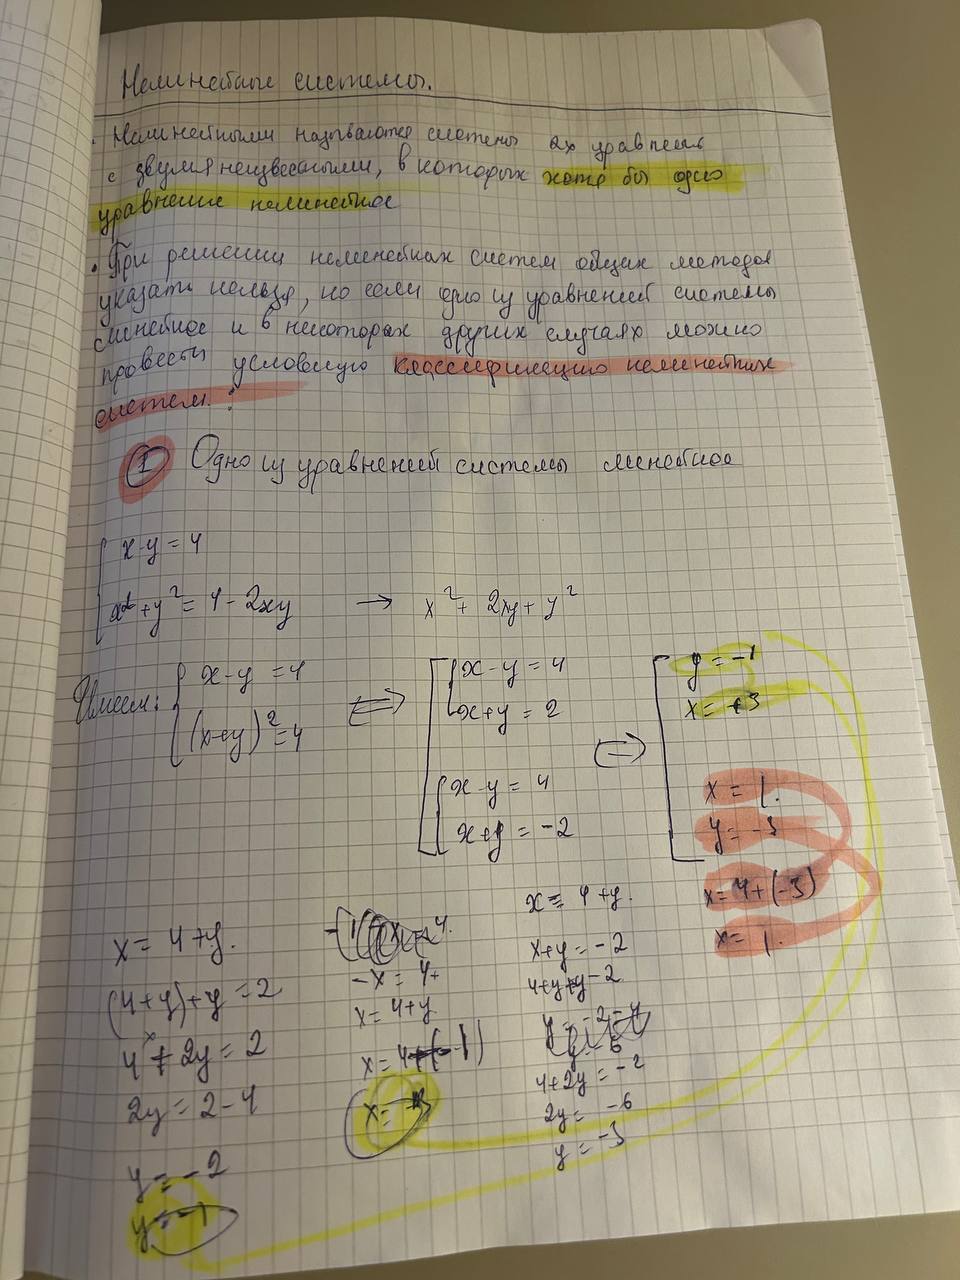 Нелинейные системы.
Нелинейными называются системы ах уравнений
с двумя неизвестными, в которых хотя бы одно
уравнение нелинейное
• При решении нелинейных систем общих методов
указать нельзя, но если одно из уравнений системы
линейное и в некоторых других случаях можно
провести условную классификацию нелинейных
систем :
① Одно из уравнений системы линейное
x-y = 4
x²+y² = 4-2xy → x²+2xy+y²
Имеем: x-y = 4
(x+y)² = 4
⇔
x-y = 4
x+y = 2
x-y = 4
x+y = -2
⇔
y = -1
x = +3
x = 1.
y = -3
x = 4+(-3)
x = 1.
x = 4+y.
(4+y)+y = 2
4+2y = 2
2y = 2-4
y = -2
y = -1
-x = 4+
x = 4+y
x = 4+(-1)
x = 3
x = 4+y.
x+y = -2
4+y+y-2
y = -2-4
y = 6
4+2y = -2
2y = -6
y = -3